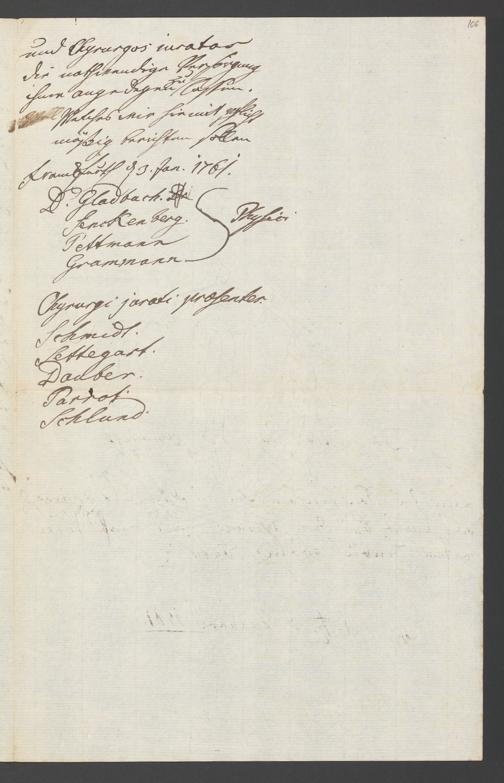 106
und Chyrurgos iuratos
die nothwendige Verfügung
ihme angedeyen zu lassen.
Welches wir hiemit pflicht
mäßig berichten sollen
Franckfurth d 3. Jan. 1761.
Dr. Gladbach.
Senckenberg.
Pettmann
Grammann
Physici
Chyrurgi jurati præsentes.
Schmidt.
Lettegart.
Dauber.
Parrot.
Schlund.